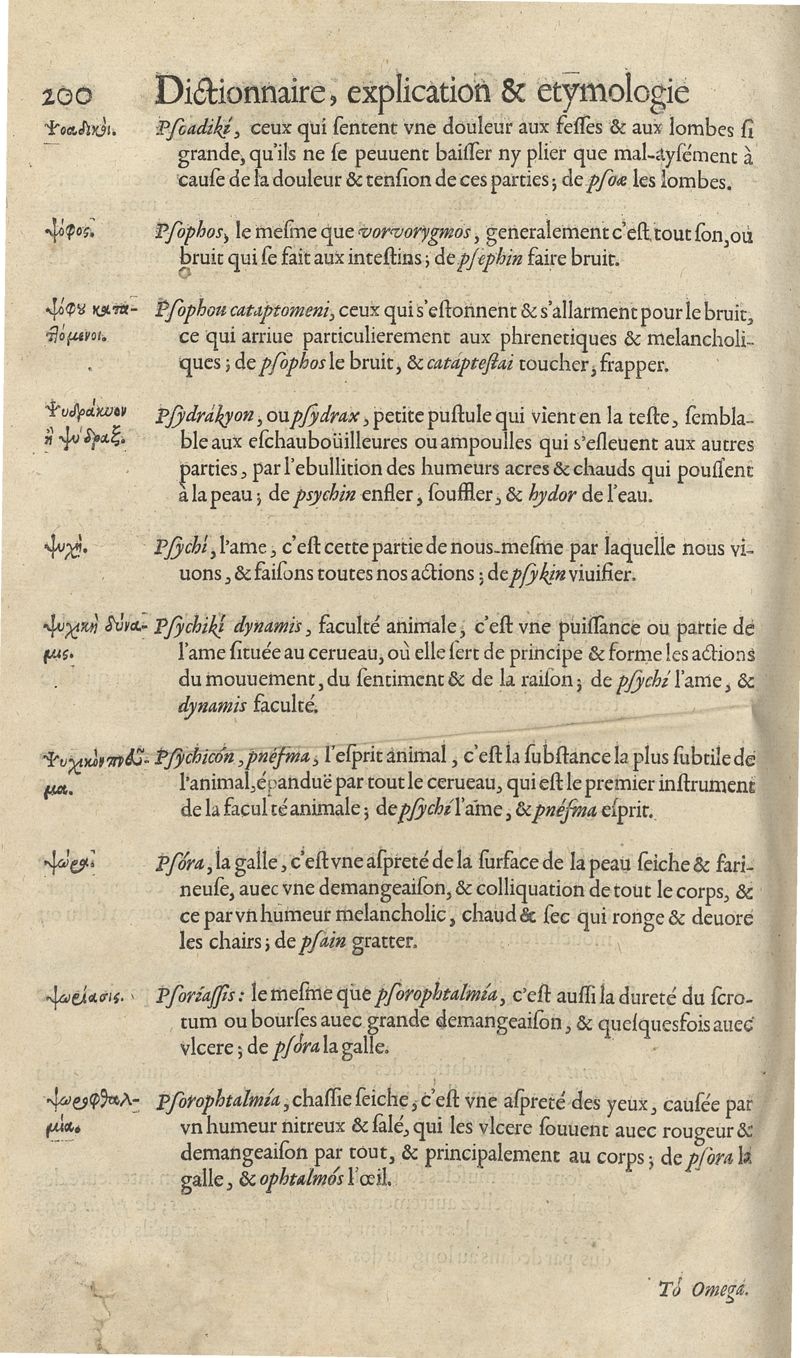 200 Dictionnaire, explication & etymologie
Ψοαδικοί. Pſoadikí, ceux qui ſentent vne douleur aux feſſes & aux lombes ſi
grande, qu'ils ne ſe peuuent baiſſer ny plier que mal-ayſément à
cauſe de la douleur & tenſion de ces parties; de pſoæ les lombes.
ψόφος. Pſophos, le meſme que vorvorygmos, generalement c'eſt tout ſon, ou
bruit qui ſe fait aux inteſtins; de pſephin faire bruit.
ψόφου κατα- Pſophou cataptomeni, ceux qui s'eſtonnent & s'allarment pour le bruit,
πτόμενοι. ce qui arriue particulierement aux phrenetiques & melancholi-
ques; de pſophos le bruit, & catápteſtai toucher, frapper.
Ψυδράκυον Pſydrákyon, ou pſydrax, petite puſtule qui vient en la teſte, ſembla-
ἢ ψύδραξ. ble aux eſchauboüilleures ou ampoulles qui s'eſleuent aux autres
parties, par l'ebullition des humeurs acres & chauds qui pouſſent
à la peau; de psychin enfler, ſouffler, & hydor de l'eau.
ψυχή. Pſychí, l'ame, c'eſt cette partie de nous-meſme par laquelle nous vi-
uons, & faiſons toutes nos actions; de pſykin viuifier.
ψυχικὴ δύνα- Pſychikí dynamis, faculté animale, c'eſt vne puiſſance ou partie de
μις. l'ame ſituée au cerueau, où elle ſert de principe & forme les actions
du mouuement, du ſentiment & de la raiſon; de pſychí l'ame, &
dynamis faculté.
Ψυχικὸν πνεῦ- Pſychicón, pnéfma, l'eſprit animal, c'eſt la ſubſtance la plus ſubtile de
μα. l'animal, épanduë par tout le cerueau, qui eſt le premier inſtrument
de la faculté animale; de pſychí l'ame, & pnéfma eſprit.
ψώρα. Pſóra, la galle, c'eſt vne aſpreté de la ſurface de la peau ſeiche & fari-
neuſe, auec vne demangeaiſon, & colliquation de tout le corps, &
ce par vn humeur melancholic, chaud & ſec qui ronge & deuore
les chairs; de pſain gratter.
ψωρίασις. Pſoríaſſis: le meſme que pſorophtalmía, c'eſt auſſi la dureté du ſcro-
tum ou bourſes auec grande demangeaiſon, & quelquesfois auec
vlcere; de pſóra la galle.
ψωροφθαλ- Pſorophtalmía, chaſſie ſeiche, c'eſt vne aſpreté des yeux, cauſée par
μία. vn humeur nitreux & ſalé, qui les vlcere ſouuent auec rougeur &
demangeaiſon par tout, & principalement au corps; de pſora la
galle, & ophtalmós l'œil.
Tó Omegá.